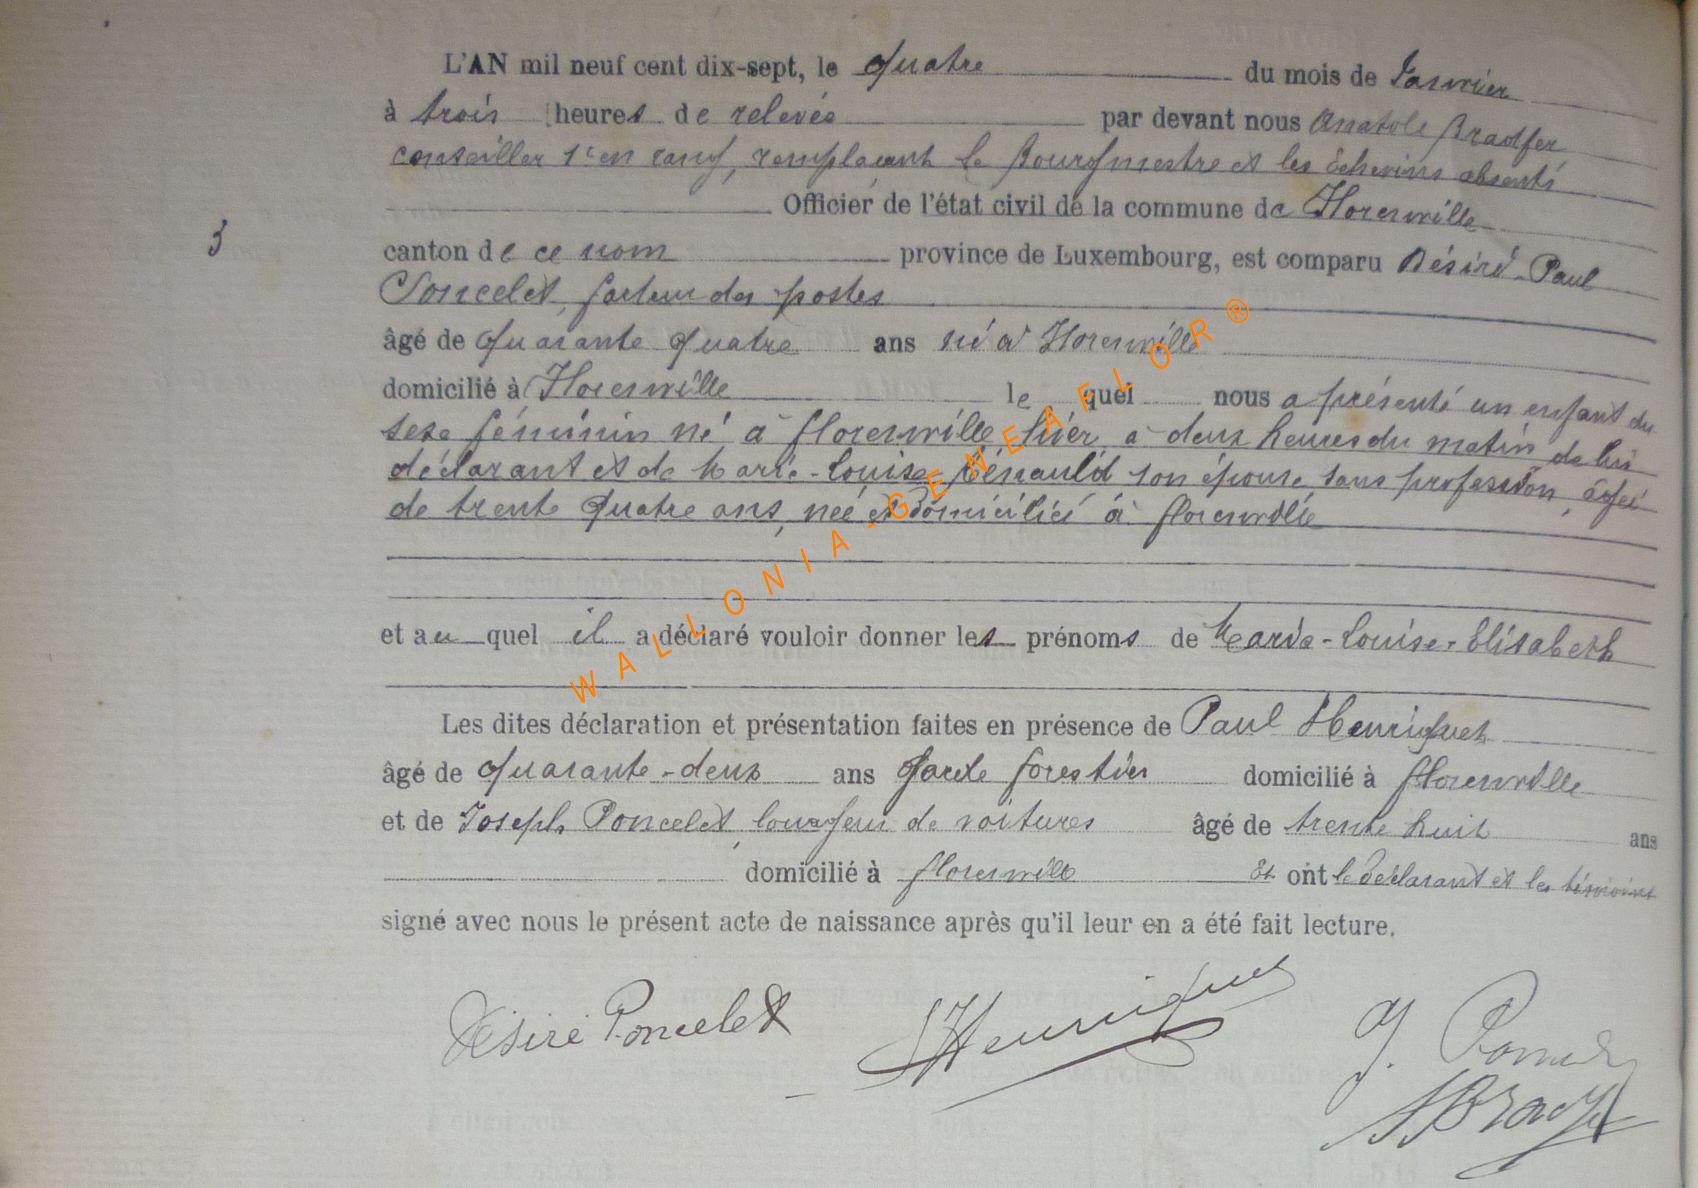 L'AN mil neuf cent dix-sept, le quatre du mois de Janvier
à trois heures de relevée par devant nous Anatole Bradfer
conseiller 1er en rang, remplaçant le Bourgmestre et les échevins absents
Officier de l'état civil de la commune de Florenville
3
canton de ce nom province de Luxembourg, est comparu Désiré-Paul
Poncelet, facteur des postes
âgé de quarante quatre ans né à Florenville
domicilié à Florenville lequel nous a présenté un enfant du
sexe féminin né à florenville hier à deux heures du matin de lui
déclarant et de Marie-Louise son épouse sans profession, âgée
de trente quatre ans, née et domiciliée à florenville
et au quel il a déclaré vouloir donner les prénoms de Maria-Louise-Elisabeth
Les dites déclaration et présentation faites en présence de Paul Henriquet
âgé de quarante-deux ans garde forestier domicilié à florenville
et de Joseph Poncelet, louageur de voitures âgé de trente huit ans
domicilié à florenville Et ont le déclarant et les témoins
signé avec nous le présent acte de naissance après qu'il leur en a été fait lecture.
Désiré Poncelet Henriquet J. Poncelet
A Bradfer
WALLONIA-GENEAFLOR®